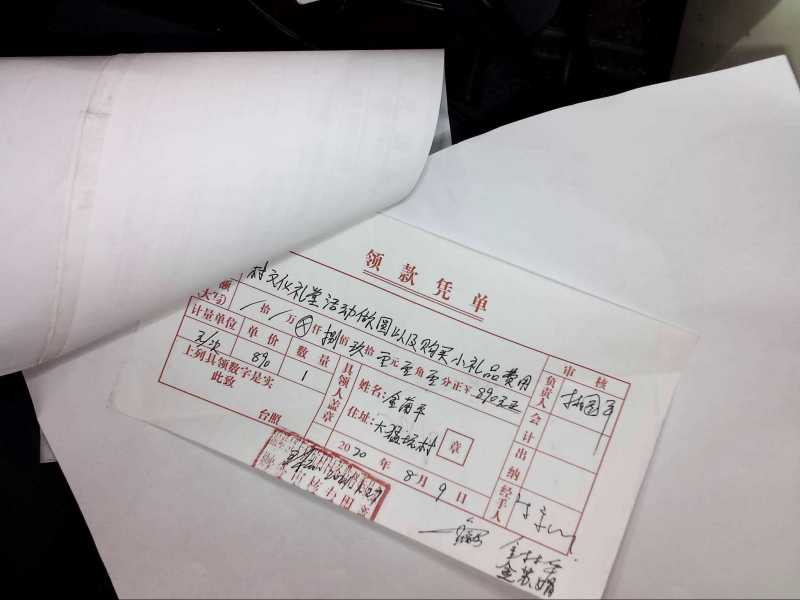 领款凭单
村文化礼堂活动做圆以及购买小礼品费用
额
大写) 拾 万 ⊗ 仟 捌 佰 玖 拾 零 元 零 角 零 分正 ¥ 890元正
计量单位 单价 数量
元/次 890 1
上列具领数字是实
此致
台照
具领人盖章
姓名:金菊平
住址:大猛坑村 章
2020 年 8 月 9 日
审核
负责人
会计
出纳
经手人
金苏娟